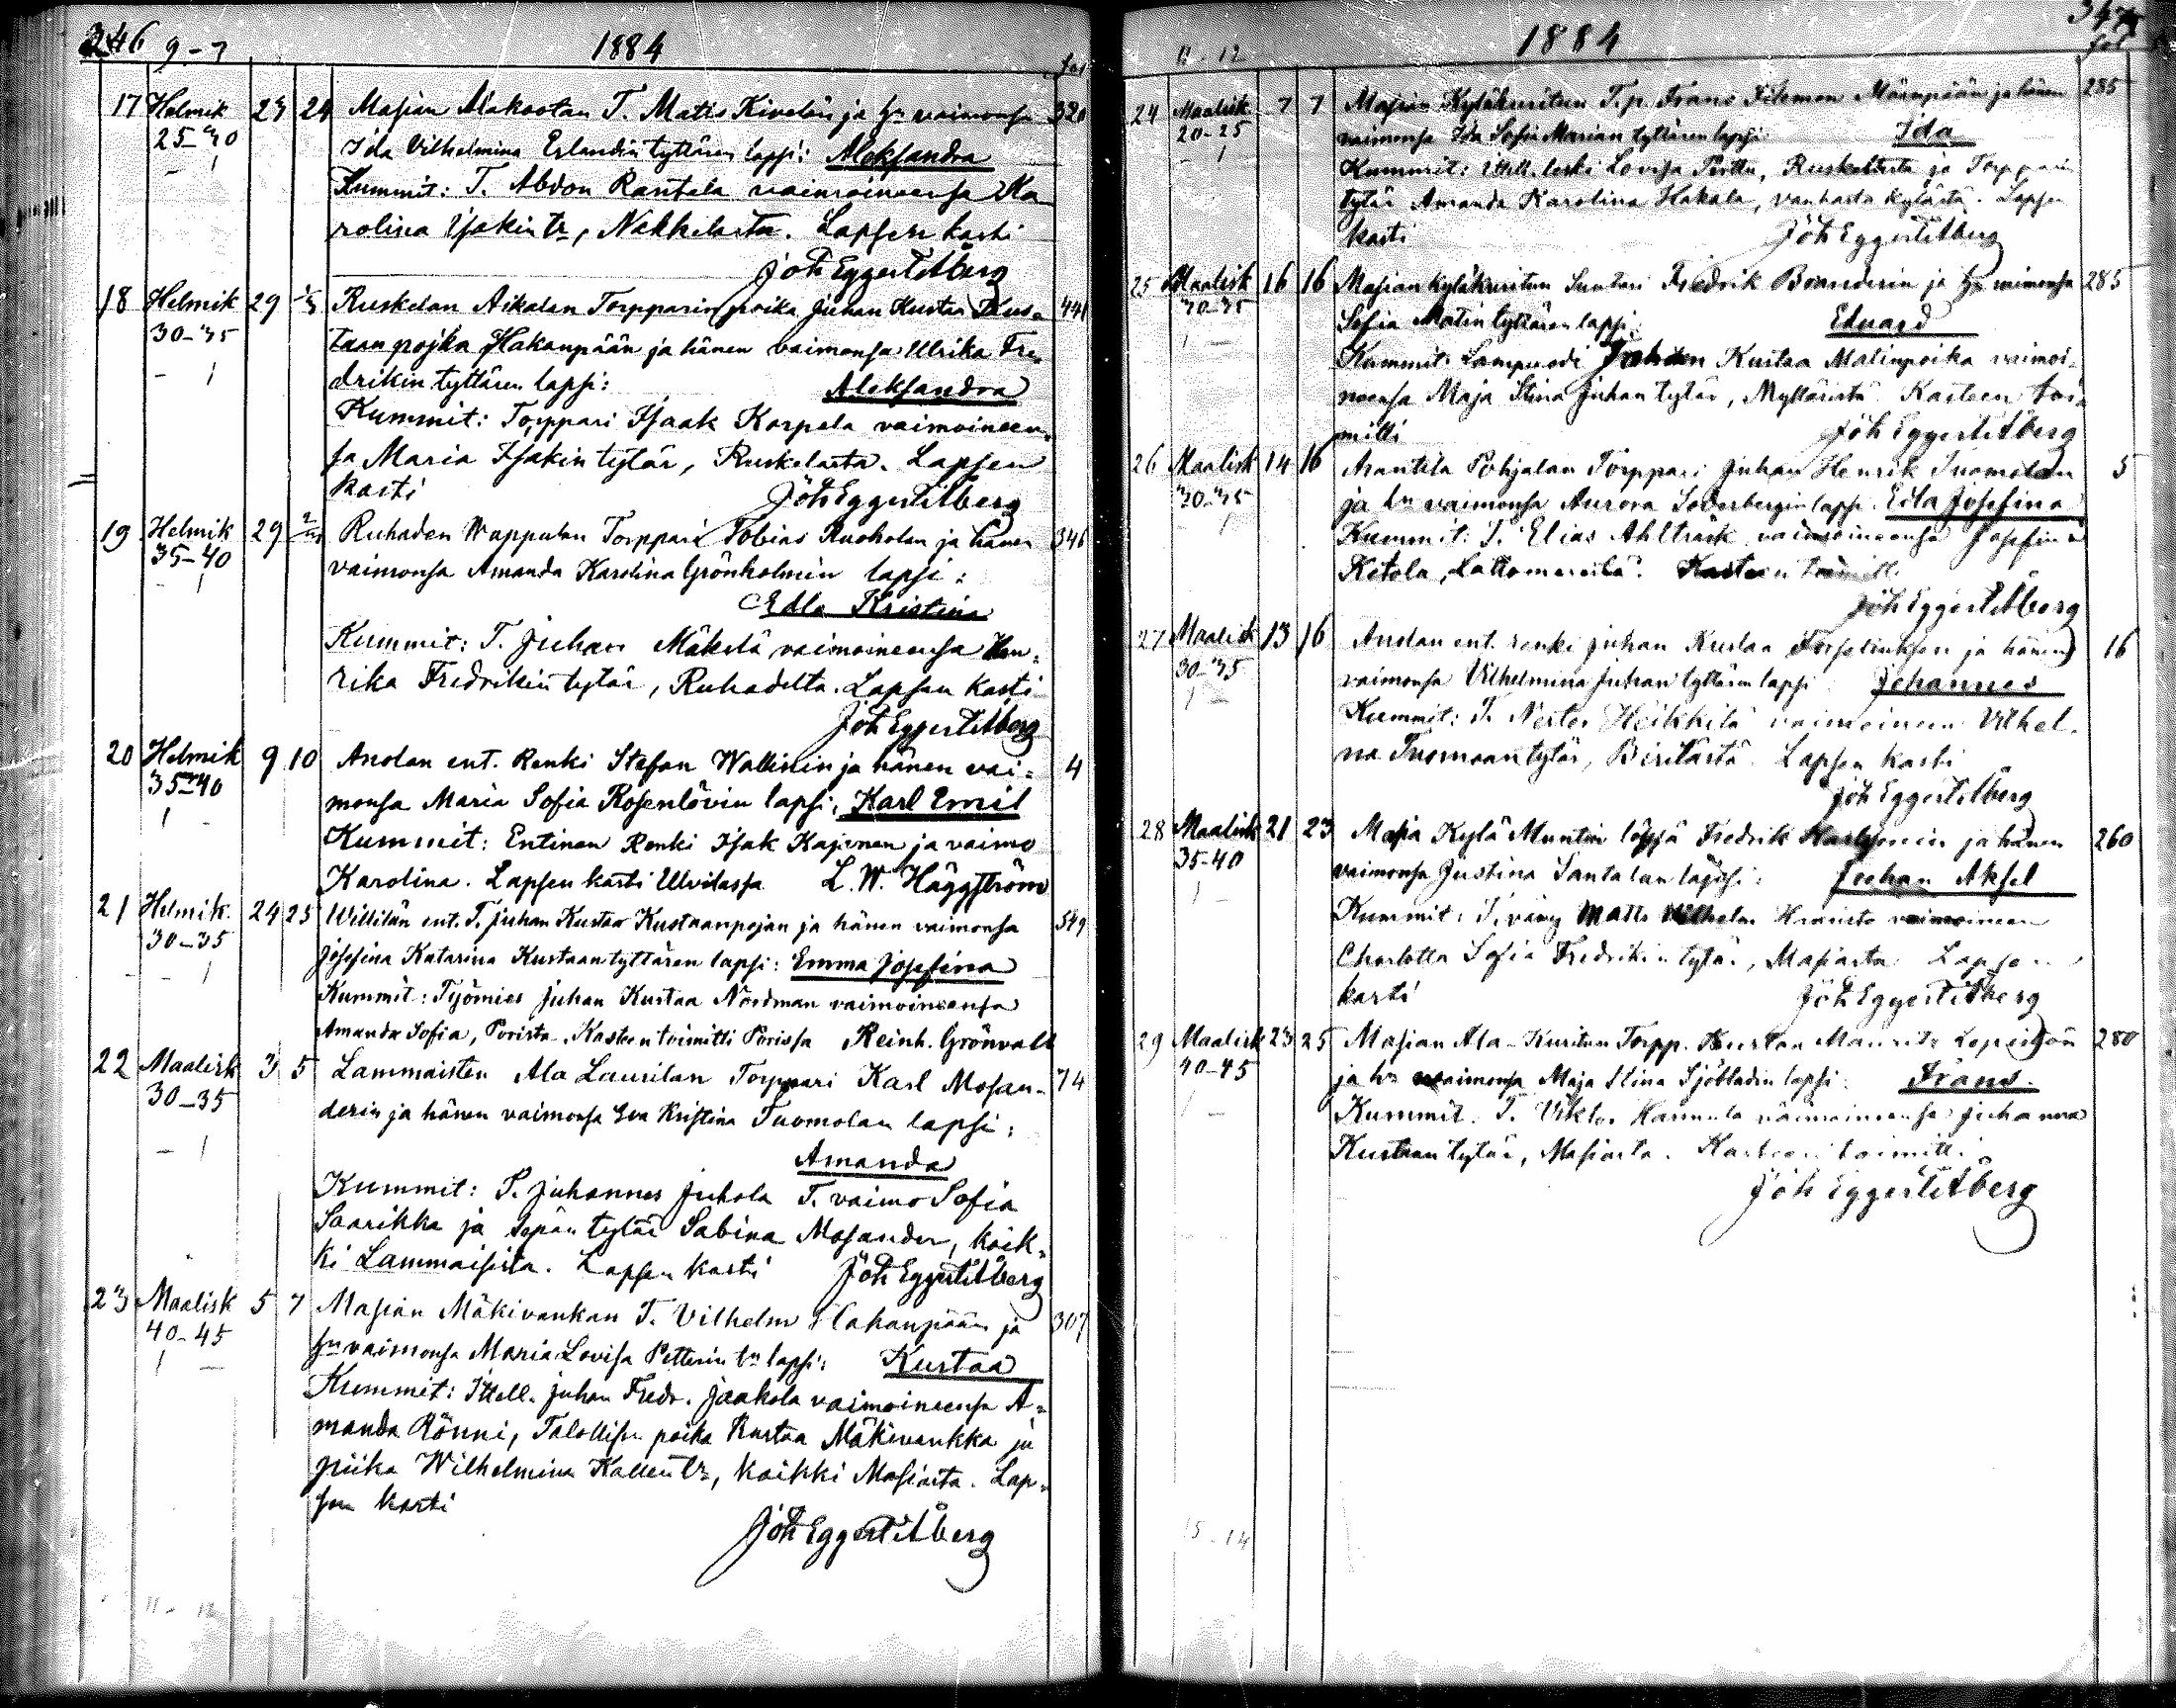 246 9-7 1884 fol
17 Helmik 23 24 Masian Alakootan T. Matts Kivelän ja hn vaimonsa 320
25-30 Ida Vilhelmina Erlandin tyttären lapsi: Aleksandra
- 1 Kummit: T. Abdon Rantala vaimoineensa Ka
rolina Isakin tr, Nakkilasta. Lapsen kasti
Joh Eggert Åberg
18 Helmik 29 1/3 Ruskelan Aikalan Torpparin poika Juhan Kustaa Kus= 441
30-35 taanpojka Hakanpään ja hänen vaimonsa Ulrika Fre
- 1 drikin tyttären lapsi: Aleksandra
Kummit: Torppari Isaak Karpela vaimoineen
sa Maria Isakin tytär, Ruskelasta. Lapsen
kasti Joh Eggert Åberg
19 Helmik 29 2/3 Ruhaden Wappulan Torppari Tobias Ruoholan ja hänen 346
35-40 vaimonsa Amanda Karolina Grönholmin lapsi:
- 1 Edla Kristina
Kummit: T. Juhan Mäkelä vaimoineensa Hen=
rika Fredrikin tytär, Ruhadelta. Lapsen kasti
Joh Eggert Åberg
20 Helmik 9 10 Anolan ent. Renki Stefan Wallinin ja hänen vai= 4
35-40 monsa Maria Sofia Rosenlövin lapsi, Karl Emil
1 - Kummit: Entinen Renki Isak Kajenen ja vaimo
Karolina. Lapsen kasti Ulvilassa L. W. Häggström
21 Helmik. 24 25 Willilän ent. T. Juhan Kustaa Kustaanpojan ja hänen vaimonsa 549
30-35 Josefina Katarina Kustaan tyttären lapsi: Emma Josefina
- 1 Kummit: Työmies Juhan Kustaa Nordman vaimoineensa
Amanda Sofia, Porista. Kasteen toimitti Porissa Reinh. Grönvall
22 Maalisk 3 5 Lammaisten Ala Laurilan Torppari Karl Mosan- 74
30-35 derin ja hänen vaimonsa Eva Kristina Tuomolan lapsi:
- 1 Amanda
Kummit: T. Juhannes Juhola T. vaimo Sofia
Saarikka ja Sepän tytär Sabina Mosander, kaik=
ki Lammaisista. Lapsen kasti Joh Eggert Åberg
23 Maalisk 5 7 Masian Mäkivankan T. Vilhelm Ilahanpään ja 307
40-45 hn vaimonsa Maria Lovisa Petterin tr lapsi: Kustaa
1 - Kummit: Ittell. Juhan Fredr. Jaakola vaimoineensa A=
manda Rönni, Talollisen poika Kustaa Mäkivankka ja
piika Wilhelmina Kallen tr, kaikki Masiasta. Lap=
sen kasti
Joh Eggert Åberg
11-12
11-12 1884 347 fol
24 Maalisk 7 7 Masian Kyläkuritun T.p. Frans Filemon Männpään ja hänen 285
20-25 vaimonsa Ida Sofia Marian tyttären lapsi: Ida
- 1 Kummit: Ittell. leski Lovisa Perttu, Ruskelasta ja Torpparin
tytär Amanda Karolina Hakala, vanhasta kylästä. Lapsen
kasti Joh Eggert Åberg
25 Maalisk 16 16 Masian kyläkuritun Suutari Fredrik Branderin ja hn vaimonsa 285
30-35 Sofia Matin tyttären lapsi: Eduard
1 - Kummit: Lampuodi Juhan Kustaa Matinpoika vaimoi=
neensa Maja Stina Juhan tytär, Mylläristä. Kasteen toi=
mitti Joh Eggert Åberg
26 Maalisk 14 16 Anantila Pohjalan Torppari Juhan Henrik Tuomolan 5
30-35 ja hn vaimonsa Aurora Söderbergin lapsi. Edla Josefina
- 1 Kummit: T. Elias Ahlträsk vaimoineensa Josefina
Ketola, Lattomerelta. Kasteen toimitti
Joh Eggert Åberg
27 Maalisk 13 16 Anolan ent. renki Juhan Kustaa Forseliuksen ja hänen 16
30-35 vaimonsa Vilhelmina Juhan tyttären lapsi Johannes
1 - Kummit: T. Nestor Heikkilä vaimoineen Vilhel.
na Tuomaan tytär, Birilästä. Lapsen kasti
Joh Eggert Åberg
28 Maalisk 21 23 Masia Kylä Muntin löysä Fredrik Karlssonin ja hänen 260
35-40 vaimonsa Justina Santalan lapsi: Johan Aksel
1 - Kummit: T. vävy Matts Vilhelm vaimoineen
Charlotta Sofia Fredrikin tytär, Masiasta. Lapsen
kasti Joh Eggert Åberg
29 Maalisk 23 25 Masian Ala-Kuritun Torpp. Kustaa Mauritz 280
40-45 ja hn vaimonsa Maja Stina Sjöbladin lapsi: Frans.
1 - Kummit. T. Viktor Hannula vaimoineensa Juhanna
Kustaan tytär, Masiasta. Kasteen toimitti
Joh Eggert Åberg
15-14